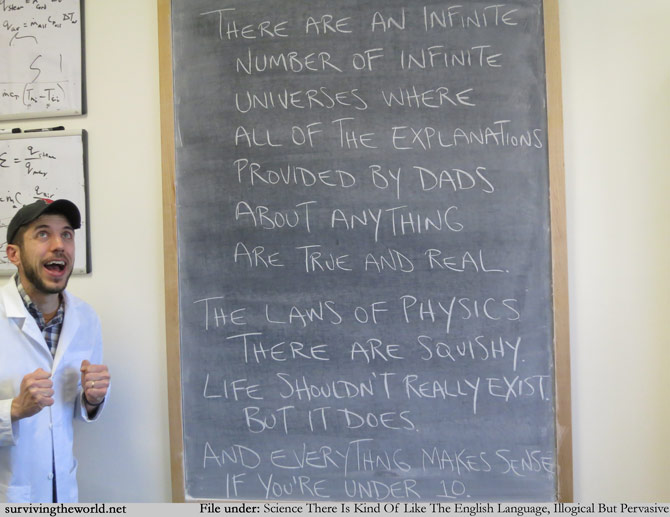 THERE ARE AN INFINITE
NUMBER OF INFINITE
UNIVERSES WHERE
ALL OF THE EXPLANATIONS
PROVIDED BY DADS
ABOUT ANYTHING
ARE TRUE AND REAL.
THE LAWS OF PHYSICS
THERE ARE SQUISHY.
LIFE SHOULDN'T REALLY EXIST.
BUT IT DOES.
AND EVERYTHNG MAKES SENSE
IF YOU'RE UNDER 10.
survivingtheworld.net
File under: Science There Is Kind Of Like The English Language, Illogical But Pervasive